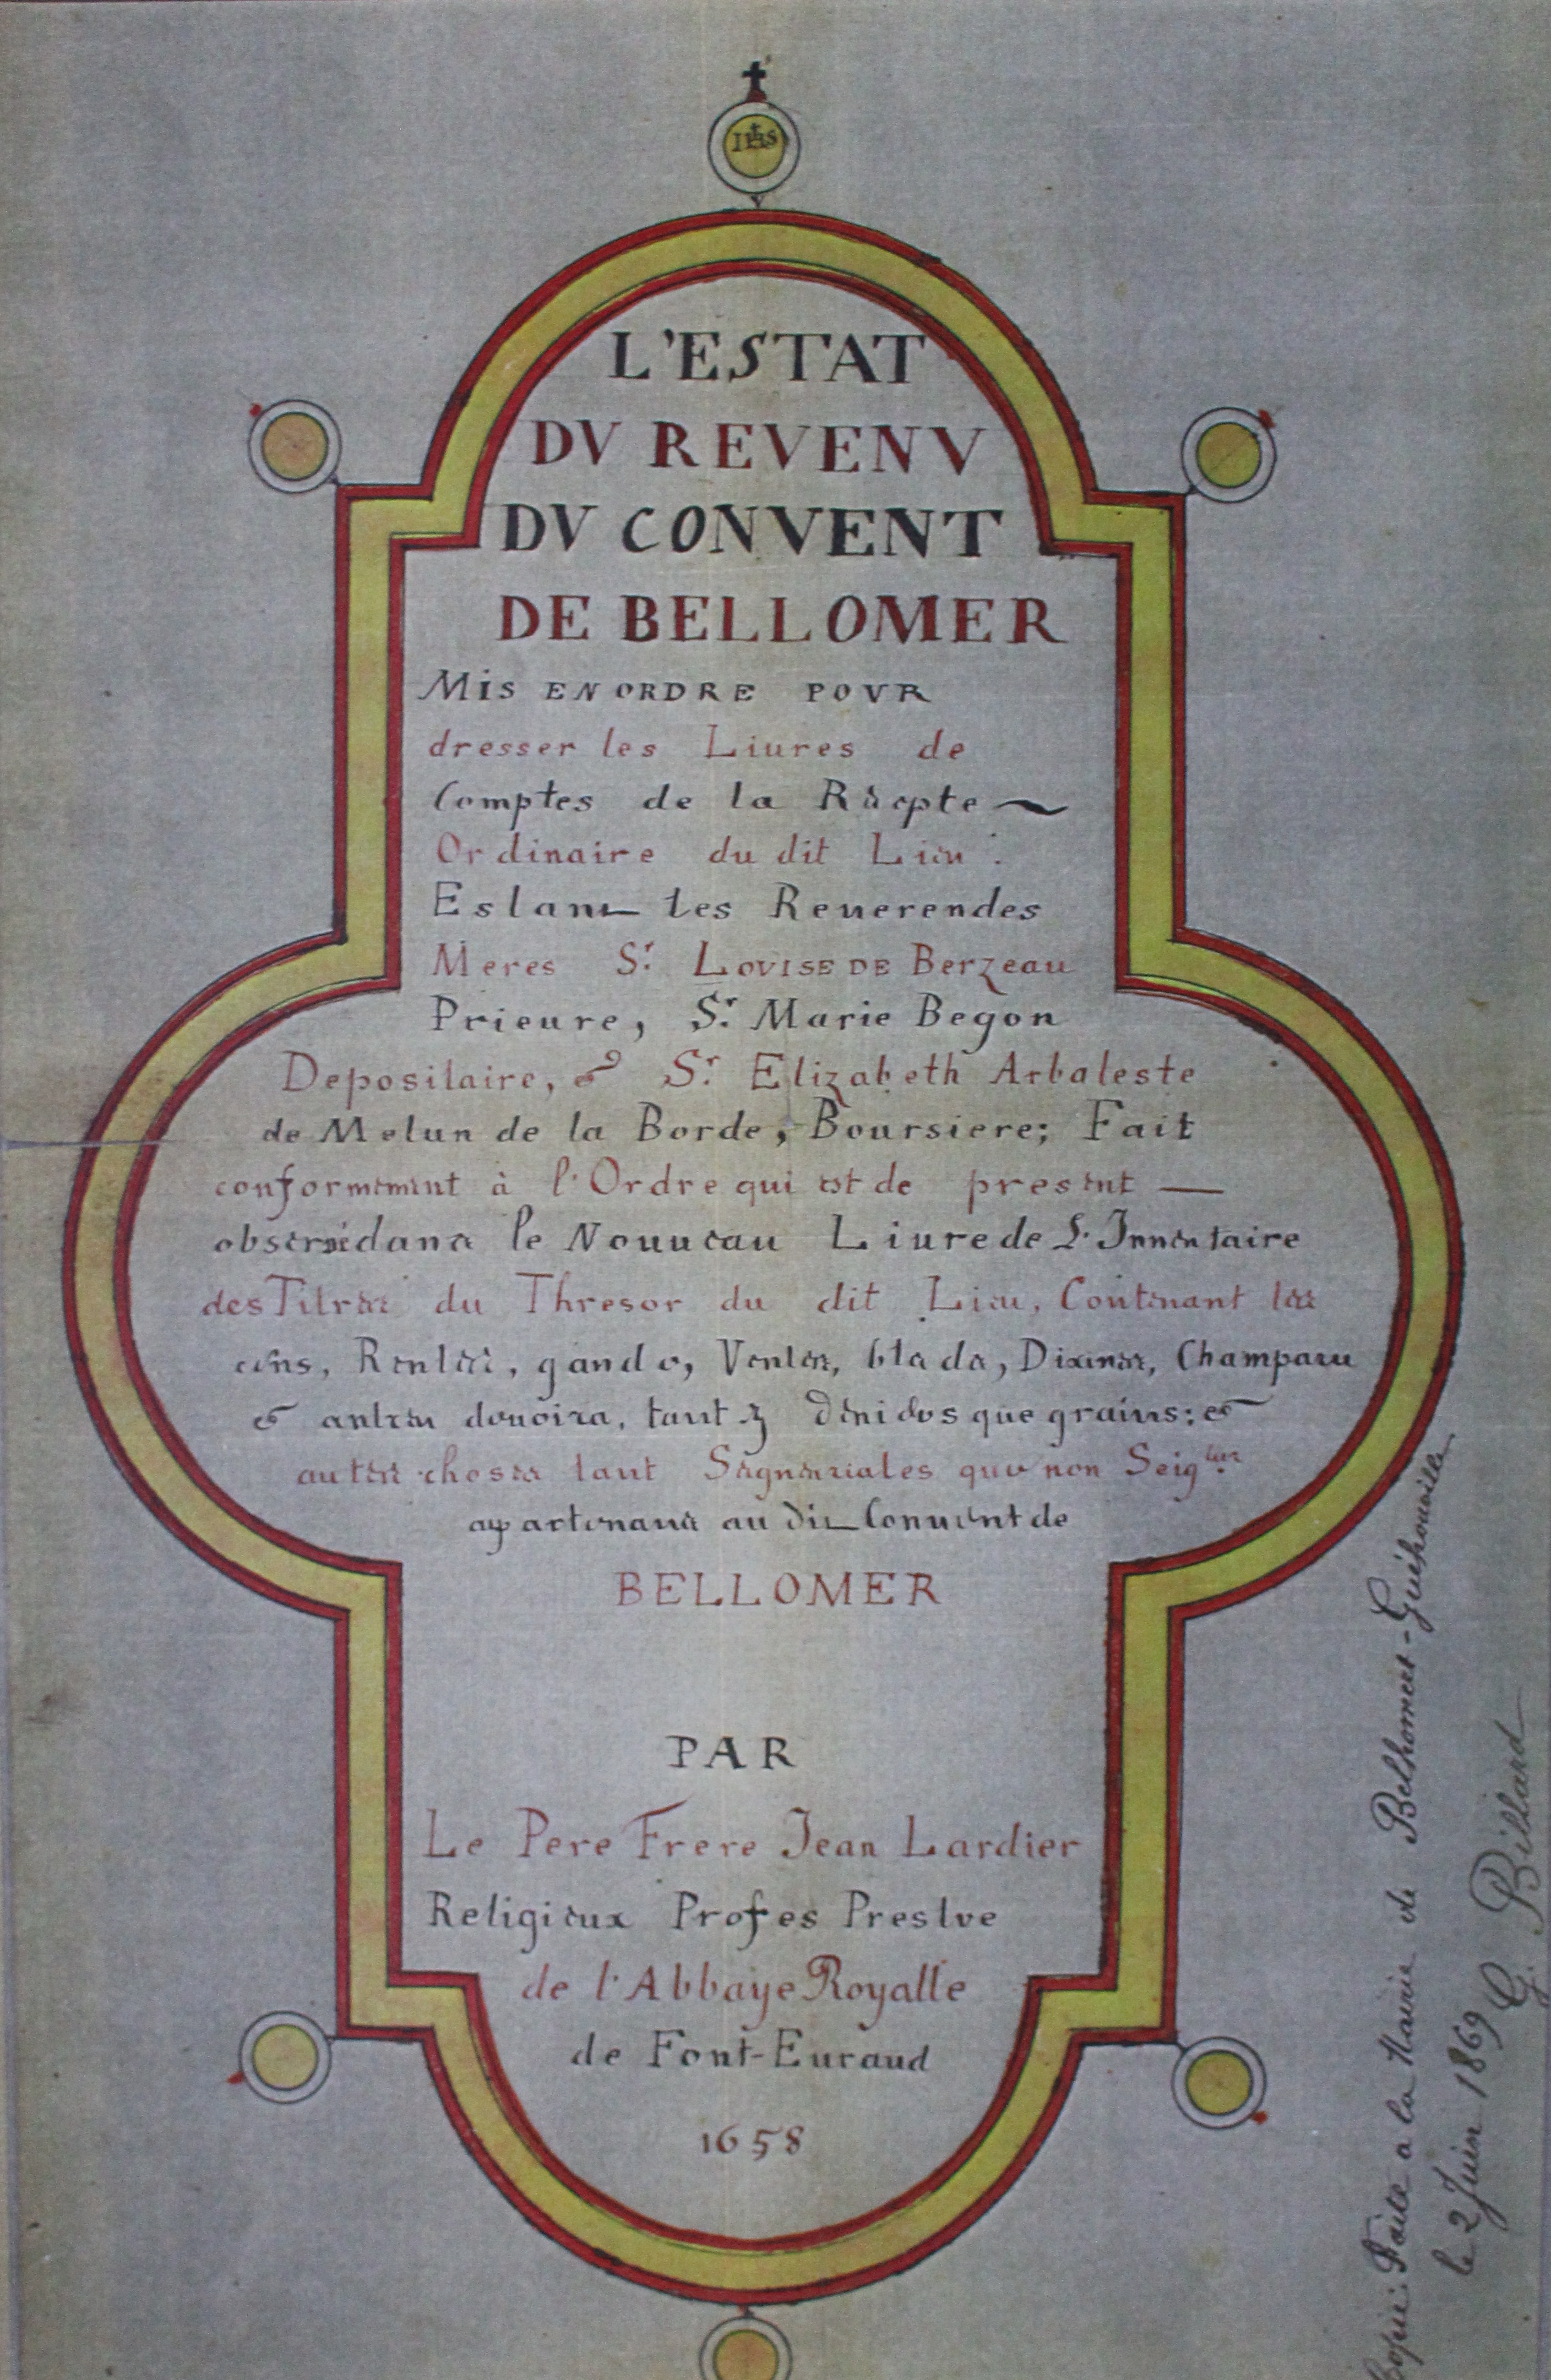 IHS
L'ESTAT
DV REVENV
DV CONVENT
DE BELLOMER
MIS EN ORDRE POVR
dresser les Liures de
Comptes de la Recepte ~
Ordinaire du dit Lieu .
Estant les Reuerendes
Meres Sr. LOVISE DE Berzeau
Prieure, Sr. Marie Begon
Depositaire, & Sr. Elizabeth Arbaleste
de Melun de la Borde, Boursiere; Fait
conformement à l'Ordre qui est de present —
obserué dans le Nouueau Liure de L'Inuentaire
des Titres du Thresor du dit Lieu, Contenant les
cens, Rentes, Ventes, Dixmes, Champars
& autres deuoirs, tant que grains: &
autres choses tant Seigneuriales que non Seig
apartenans au dit Conuent de
BELLOMER
PAR
Le Pere Frere Jean Lardier
Religieux Profes Prestre
de l'Abbaye Royalle
de Font-Euraud
1658
Copie: Faite a la Mairie de Belhomert-Guéhouville
le 2 Juin 1869 G. Billard